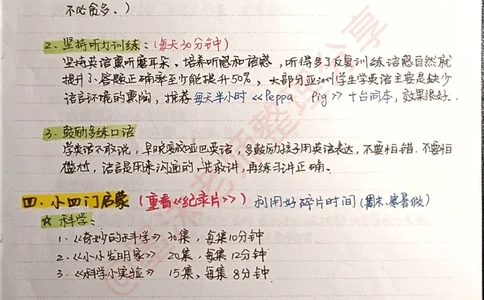 不必贪多。)
2. 坚持听力训练:(每天30分钟)
坚持英语熏听磨耳朵、培养听感和语感,听得多了反复训练语感自然就
提升了。答题正确率至少能提升50%,大部分亚洲学生学英语主要是缺少
语言环境的熏陶,推荐每天半小时《Peppa Pig》十台词本,效果很好。
3. 鼓励多练口语
学英语不敢说,早晚变成哑巴英语,多鼓励孩子用英语表达,不要怕错、不要怕
尴尬,语言是用来沟通的,先求讲,再练习讲正确。
四、小四门启蒙(重看《纪录片》)利用好碎片时间(周末、寒暑假)
☆ 科学:
1.《奇妙的科学》30集,每集10分钟
2.《小小发明家》20集,每集12分钟
3.《科学小实验》15集,每集8分钟